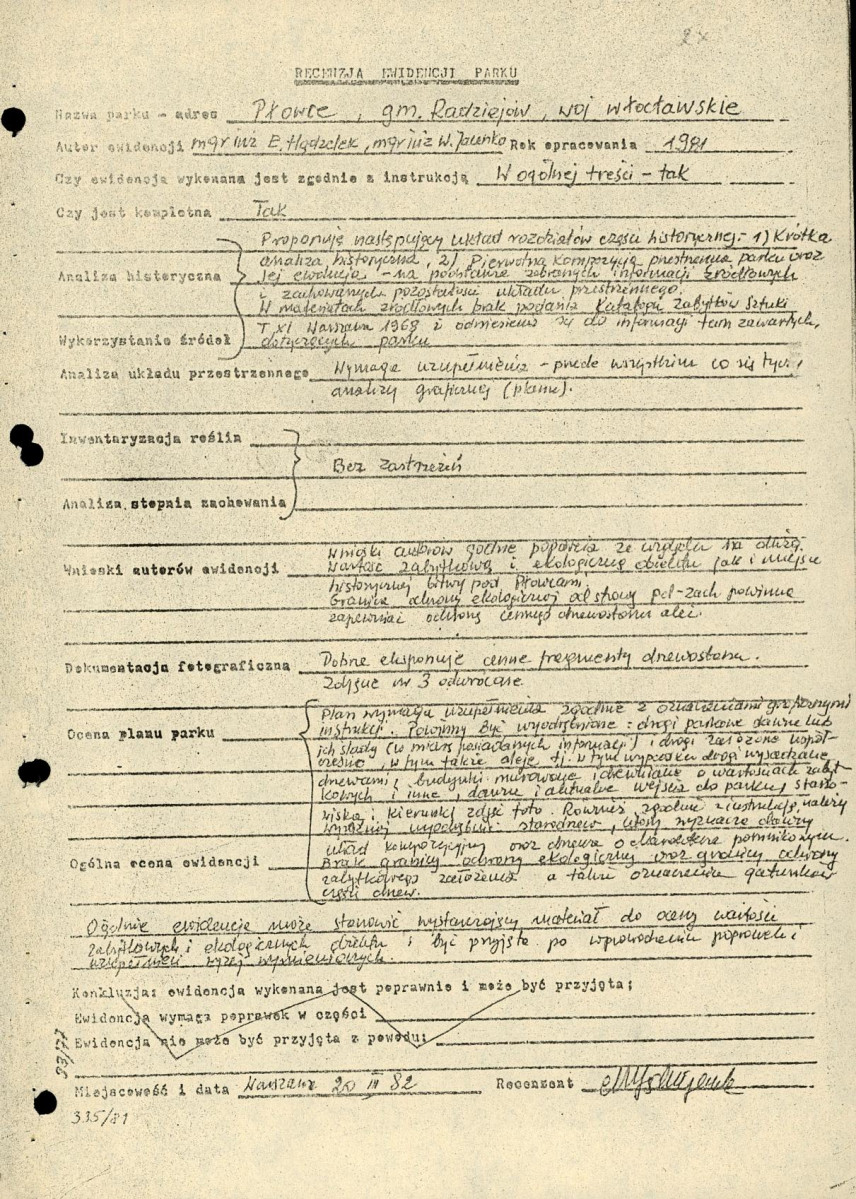 2x
RECENZJA EWIDENCJI PARKU
Nazwa parku - adres Płowce, gm. Radziejów, woj włocławskie
Autor ewidencji mgr inż E. mgr inż W. Rok opracowania 1981
Czy ewidencja wykonana jest zgodnie z instrukcją W ogólnej treści - tak
Czy jest kompletna Tak
Proponuję następujący układ rozdziałów części historycznej: 1) Krótka
analiza historyczna, 2) Pierwotna kompozycja przestrzenna parku oraz
Analiza historyczna jej ewolucja - na podstawie zebranych informacji źródłowych
i zachowanych pozostałości układu przestrzennego.
W materiałach źródłowych brak podania Katalogu Zabytków Sztuki
T XI Warszawa 1968 i odniesienia się do informacji tam zawartych,
Wykorzystanie źródeł dotyczących parku
Analiza układu przestrzennego Wymaga uzupełnienia - przede wszystkim co się tyczy
analizy graficznej (planu).
Inwentaryzacja roślin
Bez zastrzeżeń
Analiza stopnia zachowania
Wnioski autorów godne poparcia ze względu na dużą
Wnioski autorów ewidencji wartość zabytkową i ekologiczną obiektu jak i miejsce
historycznej bitwy pod Płowcami.
Granica ochrony ekologicznej od strony płd-zach powinna
zapewniać ochronę cennego drzewostanu alei.
Dokumentacja fotograficzna Dobrze eksponuje cenne fragmenty drzewostanu.
Zdjęcie nr 3 odwrócone.
Plan wymaga uzupełnienia zgodnie z oznaczeniami graficznymi
Ocena planu parku instrukcji. Powinny być wyodrębnione: drogi parkowe dawne lub
ich ślady (w miarę posiadanych informacji) i drogi założone współ-
cześnie, w tym także aleje tj. w tym wypadku drogi wysadzane
drzewami, budynki murowane i drewniane o wartościach zabyt-
kowych i inne, dawne i aktualne wejścia do parku, stano-
wiska i kierunki zdjęć foto. Również zgodnie z instrukcją należy
wyraźniej wyodrębnić starodrzew, który wyznacza dawny
układ kompozycyjny oraz drzewa o charakterze pomnikowym.
Ogólna ocena ewidencji Brak granicy ochrony ekologicznej oraz granicy ochrony
zabytkowego założenia a także oznaczenia gatunków
części drzew.
Ogólnie ewidencja może stanowić wystarczający materiał do oceny wartości
zabytkowych i ekologicznych obiektu i być przyjęta po wprowadzeniu poprawek i
uzupełnień wyżej wymienionych.
Konkluzja: ewidencja wykonana jest poprawnie i może być przyjęta;
Ewidencja wymaga poprawek w części
Ewidencja nie może być przyjęta z powodu:
Miejscowość i data Warszawa 20 III 82 Recenzent
335/81